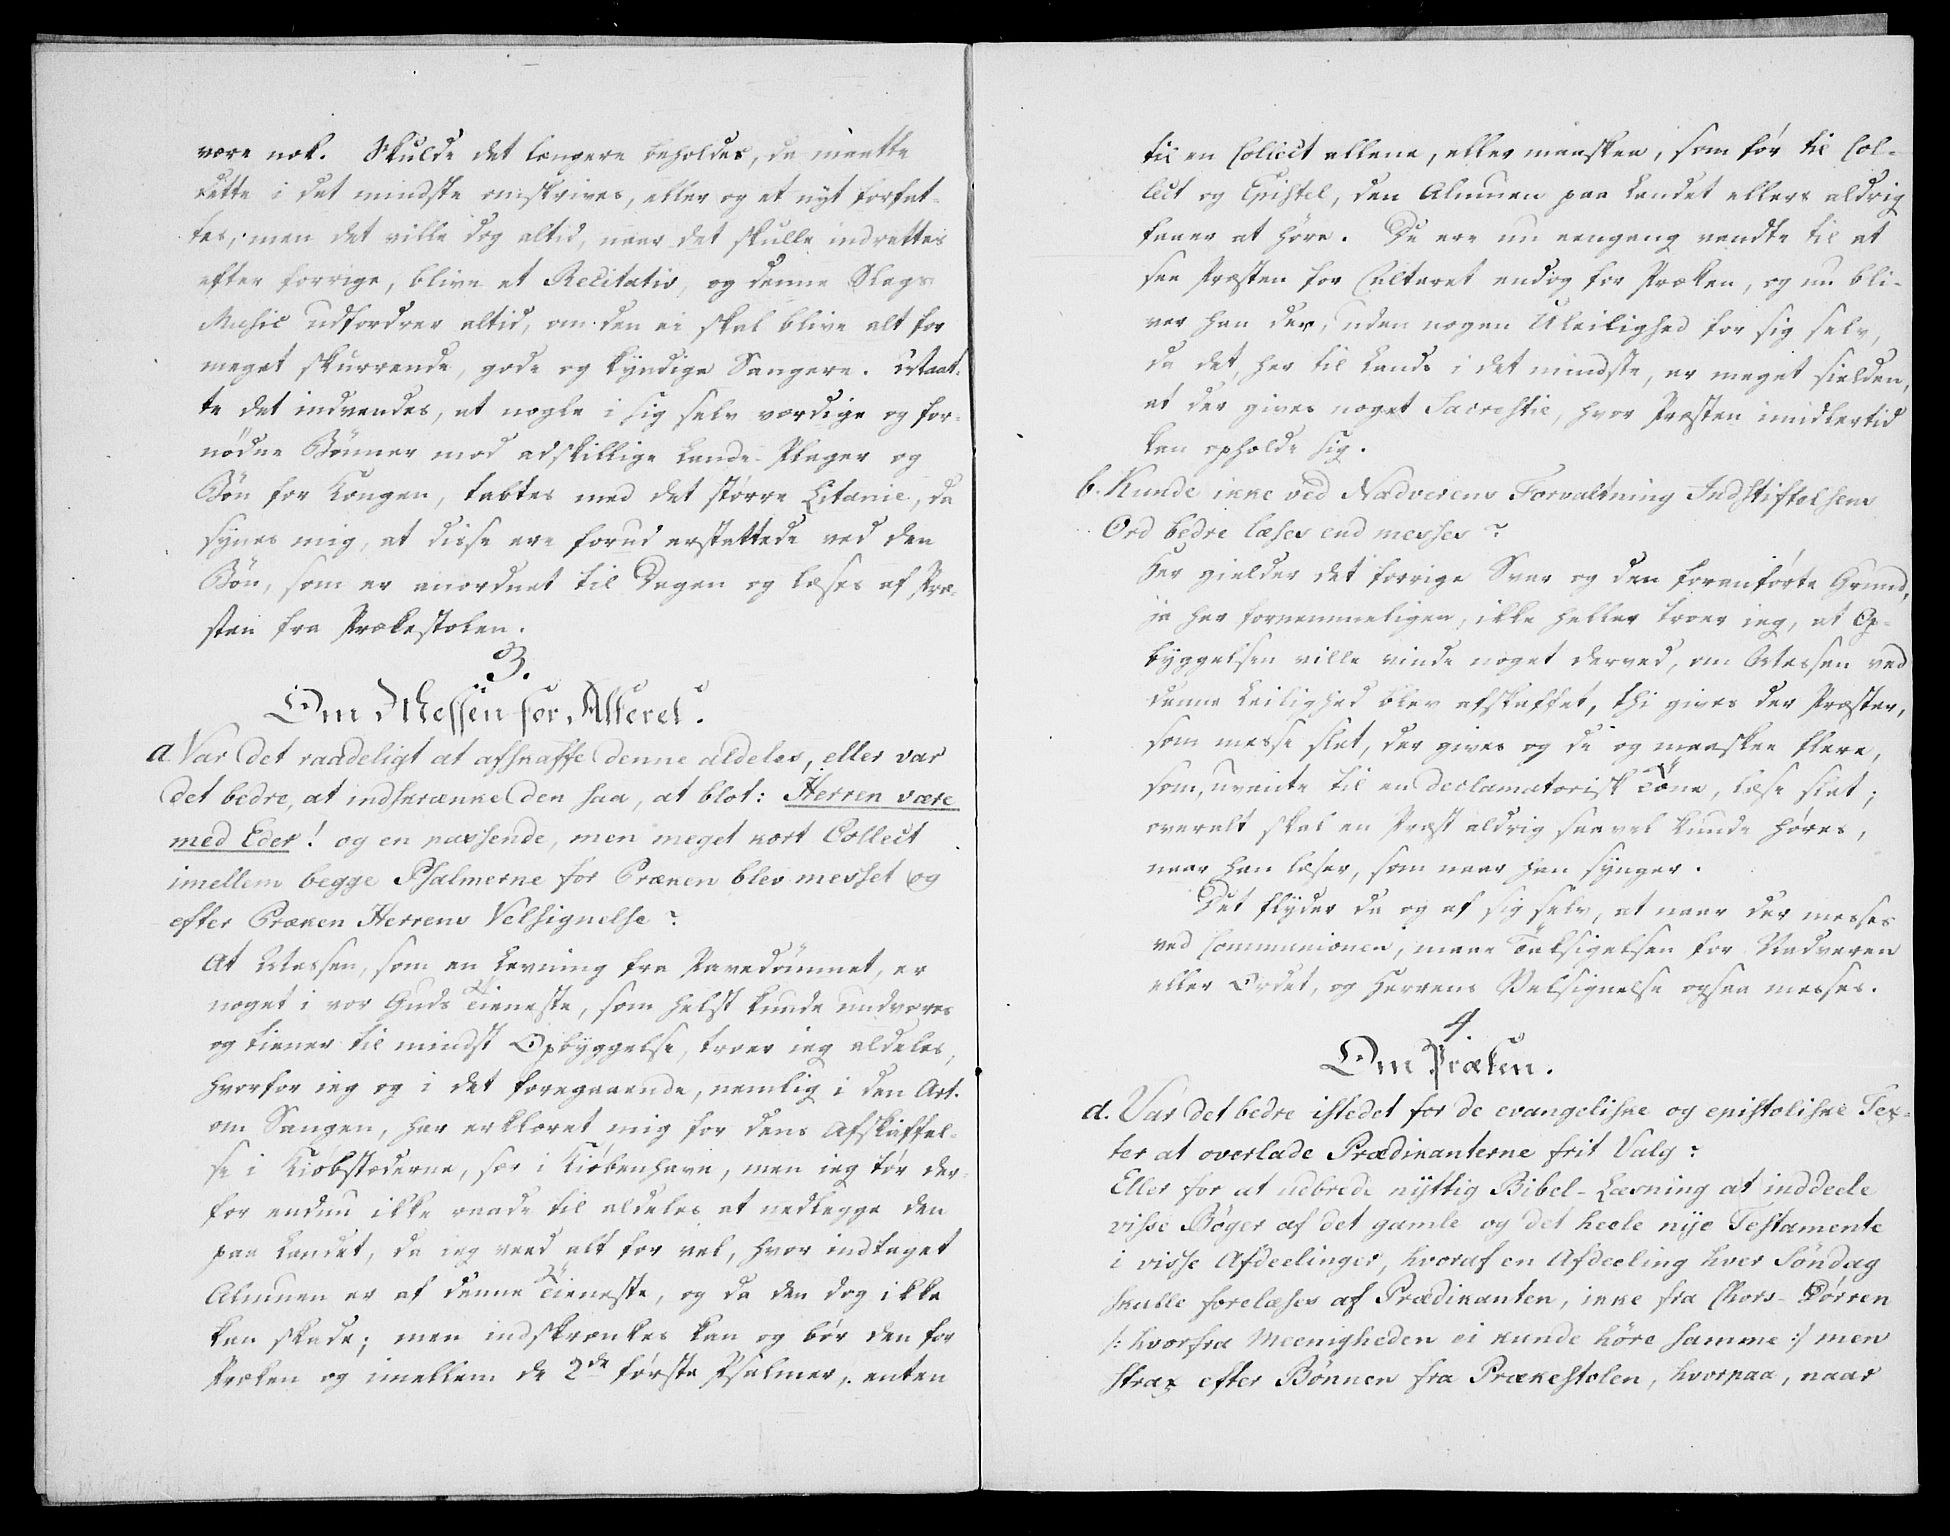 være nok. Skulde det længere beholdes, da maatte
dette i det mindste omskrives, eller og et nyt forfat-
tes; men det ville dog altid, naar det skulle indrettes
efter forrige, blive et Recitativ, og denne Slags
Music udfordrer altid, om den ei skal blive alt for
meget skurrende, gode og kyndige Sangere. Maat-
te det indvendes, at nogle i sig selv værdige og for-
nödne Bönner mod adskillige Lande-Plager og
Bön for Kongen, tabtes med det större Litanie, da
synes mig, at disse ere forud erstattede ved den
Bön, som er anordnet til Dagen og læses af Præ-
sten fra Prækestolen.
3.
Om Messen for Alteret.
a. Var det raadeligt at afskaffe denne aldeles, eller var
det bedre, at indskrænke den saa, at blot: Herren være
med Eder! og en passende, men meget kort Collect
imellem begge Psalmerne for Præken blev messet og
efter Præken Herrens Velsignelse?
At Messen, som en Levning fra Pavedömmet, er
noget i vor Guds Tieneste, som helst kunde undværes
og tiener til mindst Opbyggelse, troer ieg aldeles,
hvorfor ieg og i det foregaaende, nemlig i den Art.
om Sangen, har erklæret mig for dens Afskaffel-
se i Kiöbstæderne, sær i Kiöbenhavn, men ieg tör der-
for endnu ikke raade til aldeles at nedlægge den
paa Landet, da ieg veed alt for vel, hvor indtaget
Almuen er af denne Tieneste, og da den dog ikke
kan skade; men indskrænkes kan og bör den for
Præken og imellem de 2de förste Psalmer, enten
til en Collect allene, eller maaskee, som för til Col-
lect og Epistel, den Almuen paa Landet ellers aldrig
faaer at höre. De ere nu eengang vandte til at
see Præsten for Alteret endog for Præken, og nu bli-
ver han der, uden nogen Uleilighed for sig selv,
da det, her til Lands i det mindste, er meget sielden,
at der gives noget Sacrestie, hvor Præsten imidlertid
kan opholde sig.
b. Kunde ikke ved Nadverens Forvaltning Indstiftelsens
Ord bedre læses end messes?
Her gielder det forrige Svar og den foranförte Grund,
ja her fornemmeligen, ikke heller troer ieg, at Op-
byggelsen ville vinde noget derved, om Messen ved
denne Leilighed blev afskaffet, thi gives der Præster,
som messe slet, der gives og de og maaskee flere,
som, uvante til en declamatorisk Tone, læse slet;
overalt skal en Præst aldrig saavel kunde höres,
naar han læser, som naar han synger.
Det flyder da og af sig selv, at naar der messes
ved Communionen, maae Tilsigelsen for Nadveren
eller Ordet, og Herrens Velsignelse ogsaa messes.
4.
Om Præken.
a. Var det bedre istedet for de evangeliske og epistoliske Tex-
ter at overlade Prædikanterne frit Valg?
Eller for at udbrede nyttig Bibel-Læsning at inddeele
visse Böger af det gamle og det heele nye Testamente
i visse Afdeelinger, hvoraf en Afdeeling hver Söndag
skulle forelæses af Prædikanten, ikke fra Chors-Dörren
/: hvorfra Meenigheden ei kunde höre samme :/ men
strax efter Bönnen fra Prækestolen, hvorpaa, naar